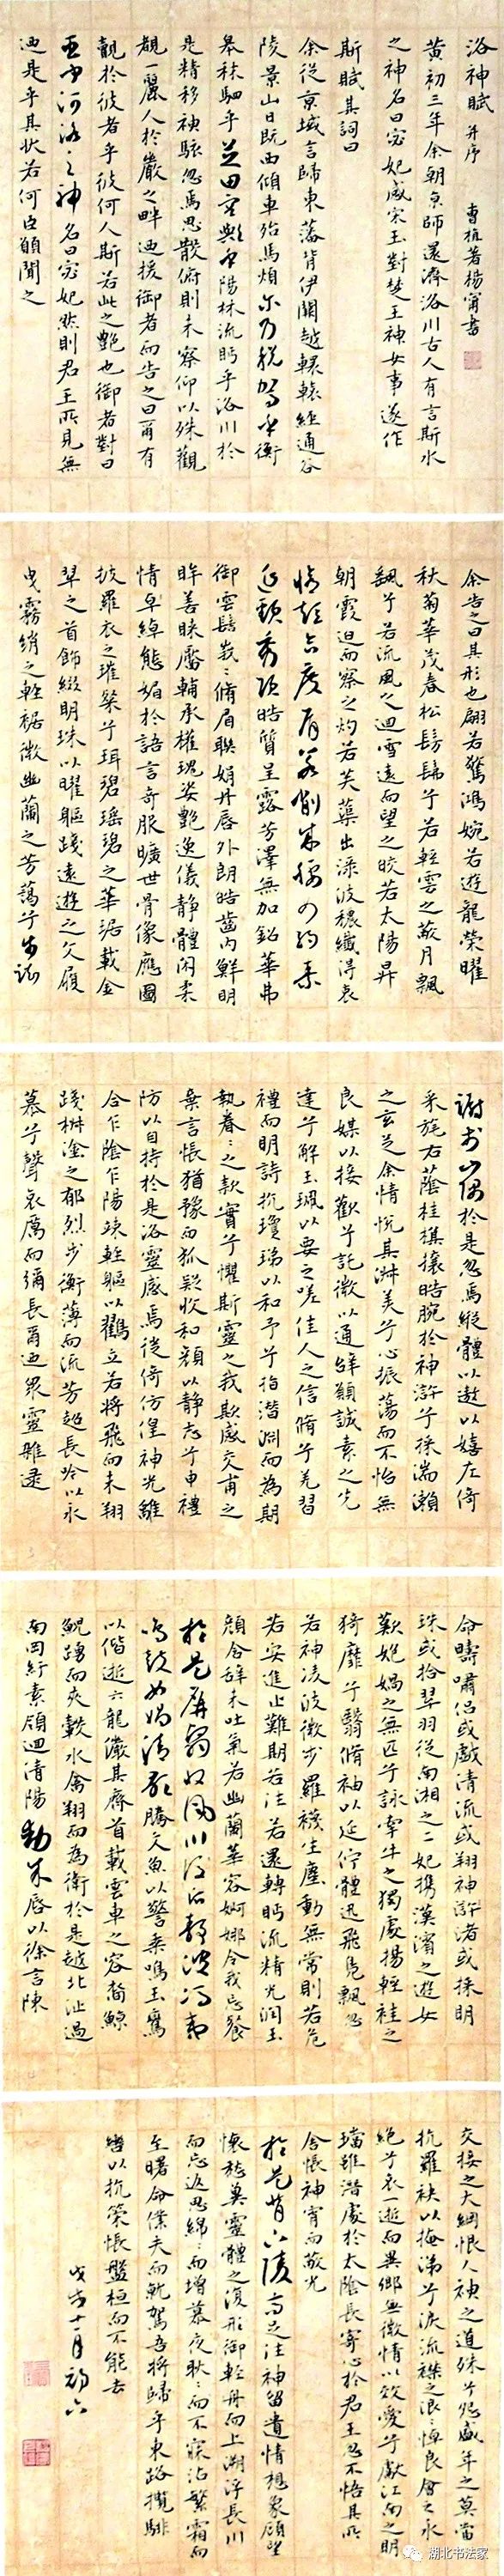 洛神賦 并序 曹植著楊甯書
黃初三年余朝京師還濟洛川古人有言斯水
之神名曰宓妃感宋玉對楚王神女事遂作
斯賦其詞曰
余從京域言歸東藩背伊闕越轘轅經通谷
陵景山日既西傾車殆馬煩尔乃稅駕乎衡
皋秣駟乎芝田容與乎陽林流眄乎洛川於
是精移神駭忽焉思散俯則未察仰以殊觀
覩一麗人於巖之畔迺援御者而告之曰爾有
覿於彼者乎彼何人斯若此之艷也御者對曰
臣聞河洛之神名曰宓妃然則君王所見無
迺是乎其狀若何臣願聞之
余告之曰其形也翩若驚鴻婉若遊龍榮曜
秋菊華茂春松髣髴兮若輕雲之蔽月飄
飖兮若流風之迴雪遠而望之皎若太陽昇
朝霞迫而察之灼若芙蕖出淥波穠纖得衷
脩短合度肩若削成腰如約素
延頸秀項皓質呈露芳澤無加鉛華弗
御雲髻峩峩脩眉聯娟丹唇外朗皓齒內鮮明
眸善睞靨輔承權瑰姿艷逸儀靜體閑柔
情卓綽態媚於語言奇服曠世骨像應圖
披羅衣之璀粲兮珥碧瑤碧之華琚戴金
翠之首飾綴明珠以曜軀踐遠遊之文履
曳霧綃之輕裾微幽蘭之芳藹兮步踟
躕於山隅於是忽焉縱體以遨以嬉左倚
采旄右蔭桂旗攘皓腕於神滸兮採湍瀨
之玄芝余情悅其淑美兮心振蕩而不怡無
良媒以接歡兮託微以通辭願誠素之先
達兮解玉珮以要之嗟佳人之信脩兮羌習
禮而明詩抗瓊珶以和予兮指潛淵而為期
執眷眷之款實兮懼斯靈之我欺感交甫之
棄言悵猶豫而狐疑收和顏以靜志兮申禮
防以自持於是洛靈感焉徙倚彷徨神光離
合乍陰乍陽竦輕軀以鶴立若將飛而未翔
踐椒塗之郁烈步衡薄而流芳超長吟以永
慕兮聲哀厲而彌長爾迺眾靈雜遝
命疇嘯侶或戲清流或翔神渚或採明
珠或拾翠羽從南湘之二妃攜漢濱之遊女
歎匏媧之無匹兮詠牽牛之獨處揚輕袿之
猗靡兮翳脩袖以延佇體迅飛鳧飄忽
若神凌波微步羅襪生塵動無常則若危
若安進止難期若往若還轉眄流精光潤玉
顏含辭未吐氣若幽蘭華容婀娜令我忘餐
於是屏翳收風川后靜波馮夷
鳴鼓女媧清歌騰文魚以警乘鳴玉鸞
以偕逝六龍儼其齊首載雲車之容裔鯨
鯢踴而夾轂水禽翔而為衛於是越北沚過
南岡紆素領迴清陽動朱唇以徐言陳
交接之大綱恨人神之道殊兮怨盛年之莫當
抗羅袂以掩涕兮淚流襟之浪浪悼良會之永
絕兮哀一逝而異鄉無微情以效愛兮獻江南之明
璫雖潛處於太陰長寄心於君王忽不悟其所
舍悵神宵而蔽光
於是背下陵高足往神留遺情想象顧望
懷愁冀靈體之復形御輕舟而上溯浮長川
而忘返思綿綿而增慕夜耿耿而不寐沾繁霜而
至曙命僕夫而就駕吾將歸乎東路攬騑
轡以抗策悵盤桓而不能去
戊戌十一月初六
湖北书法家